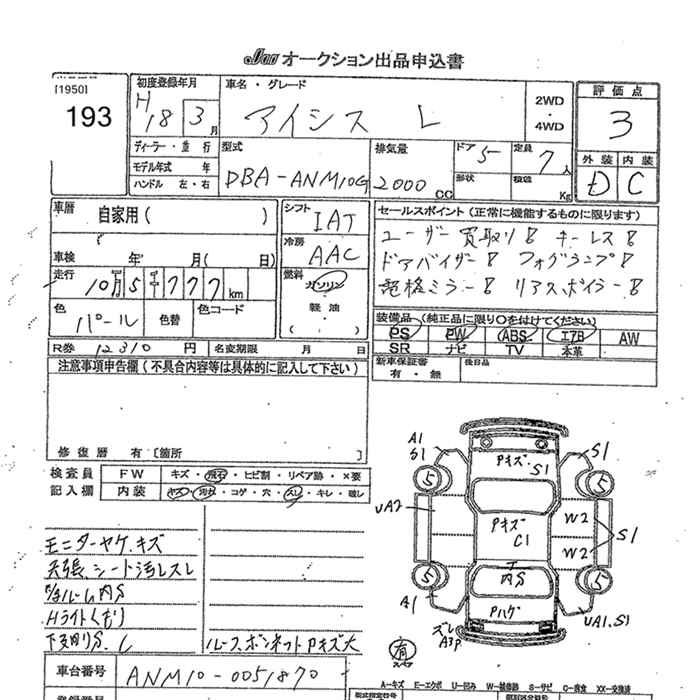 JAA オークション出品申込書
[1950]
193
初度登録年月
H18 3月
車名・グレード
アイシス L
2WD
・
4WD
評価点
3
ディーラー・並行
モデル年式 年
ハンドル 左・右
型式
DBA-ANM10G
排気量
2000 CC
ドア 5
形状
定員 7人
積載 Kg
外装 内装
D C
車歴
自家用( )
車検 年 月( 日)
走行
10万5千777km
色
パール
色替
色コード
シフト
IAT
冷房
AAC
燃料
ガソリン
軽油
( )
セールスポイント(正常に機能するものに限ります)
ユーザー買取り! キーレス!
ドアバイザー! フォグランプ!
電格ミラー! リアスポイラー!
装備品(純正品に限り○を付けてください)
PS PW ABS エアB AW
SR ナビ TV 本革
新車保証書
有・無
後日品
R券 12310円
名変期限 月 日
注意事項申告欄(不具合内容等は具体的に記入して下さい)
修復歴 有〔箇所
検査員
記入欄
FW キズ・飛石・ヒビ割・リペア跡・×要
内装 ヤケ・汚れ・コゲ・穴・スレ・キレ・破レ
モニターヤケ.キズ
天張.シート汚レスレ
Hライトくもり
下廻りS.C
ルーズボンネットPキズ大
A1
S1
Pキズ S1
S1
5
5
UA2
Pキズ
C1
W2
W2
S1
5
5
内S
A1
Pハゲ
UA1.S1
ズレ
A3P
有
車台番号
ANM10-0051870
A=キズ E=エクボ U=凹み W=補修跡 S=サビ C=腐食 XX=交換済